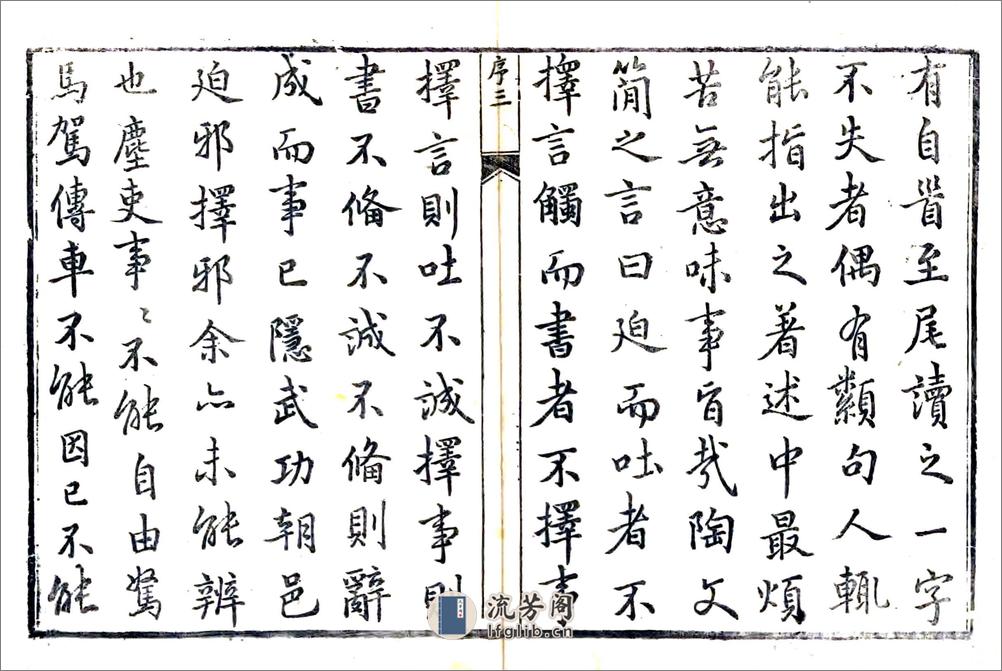 有自首至尾讀之一字
不失者偶有纇句人輒
能指出之著述中最煩
苦無意味事旨哉陶文
簡之言曰廹而吐者不
擇言觸而書者不擇事
序三
擇言則吐不誠擇事則
書不俻不誠不俻則辭
成而事已隱武功朝邑
廹邪擇邪余亦未能辨
也塵吏事〻不能自由駑
馬駕傳車不能因已不能
流芳阁
lfglib.cn